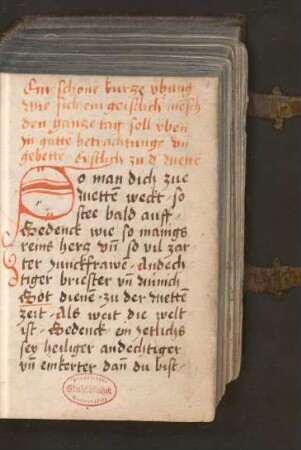 Ein schone kurze vbung
wie sich ein geistlich mēsch
den gantze tag soll vben
In gutte betrachtunge vn̄
gebetten. Erstlich zu d' mettē
So man dich zue
metten weckt. so
stee bald auff.
Gedenck wie so manigs
reins hertz vn̄ so vil zar-
ter Junckfrawē. Andech-
tiger briester vn̄ münich
Got diene. zu der metten
zeit. Als weit die welt
ist. Gedenck ein yetlichs
sey heiliger andechtiger
vn̄ einkerter dan̄ du bist.